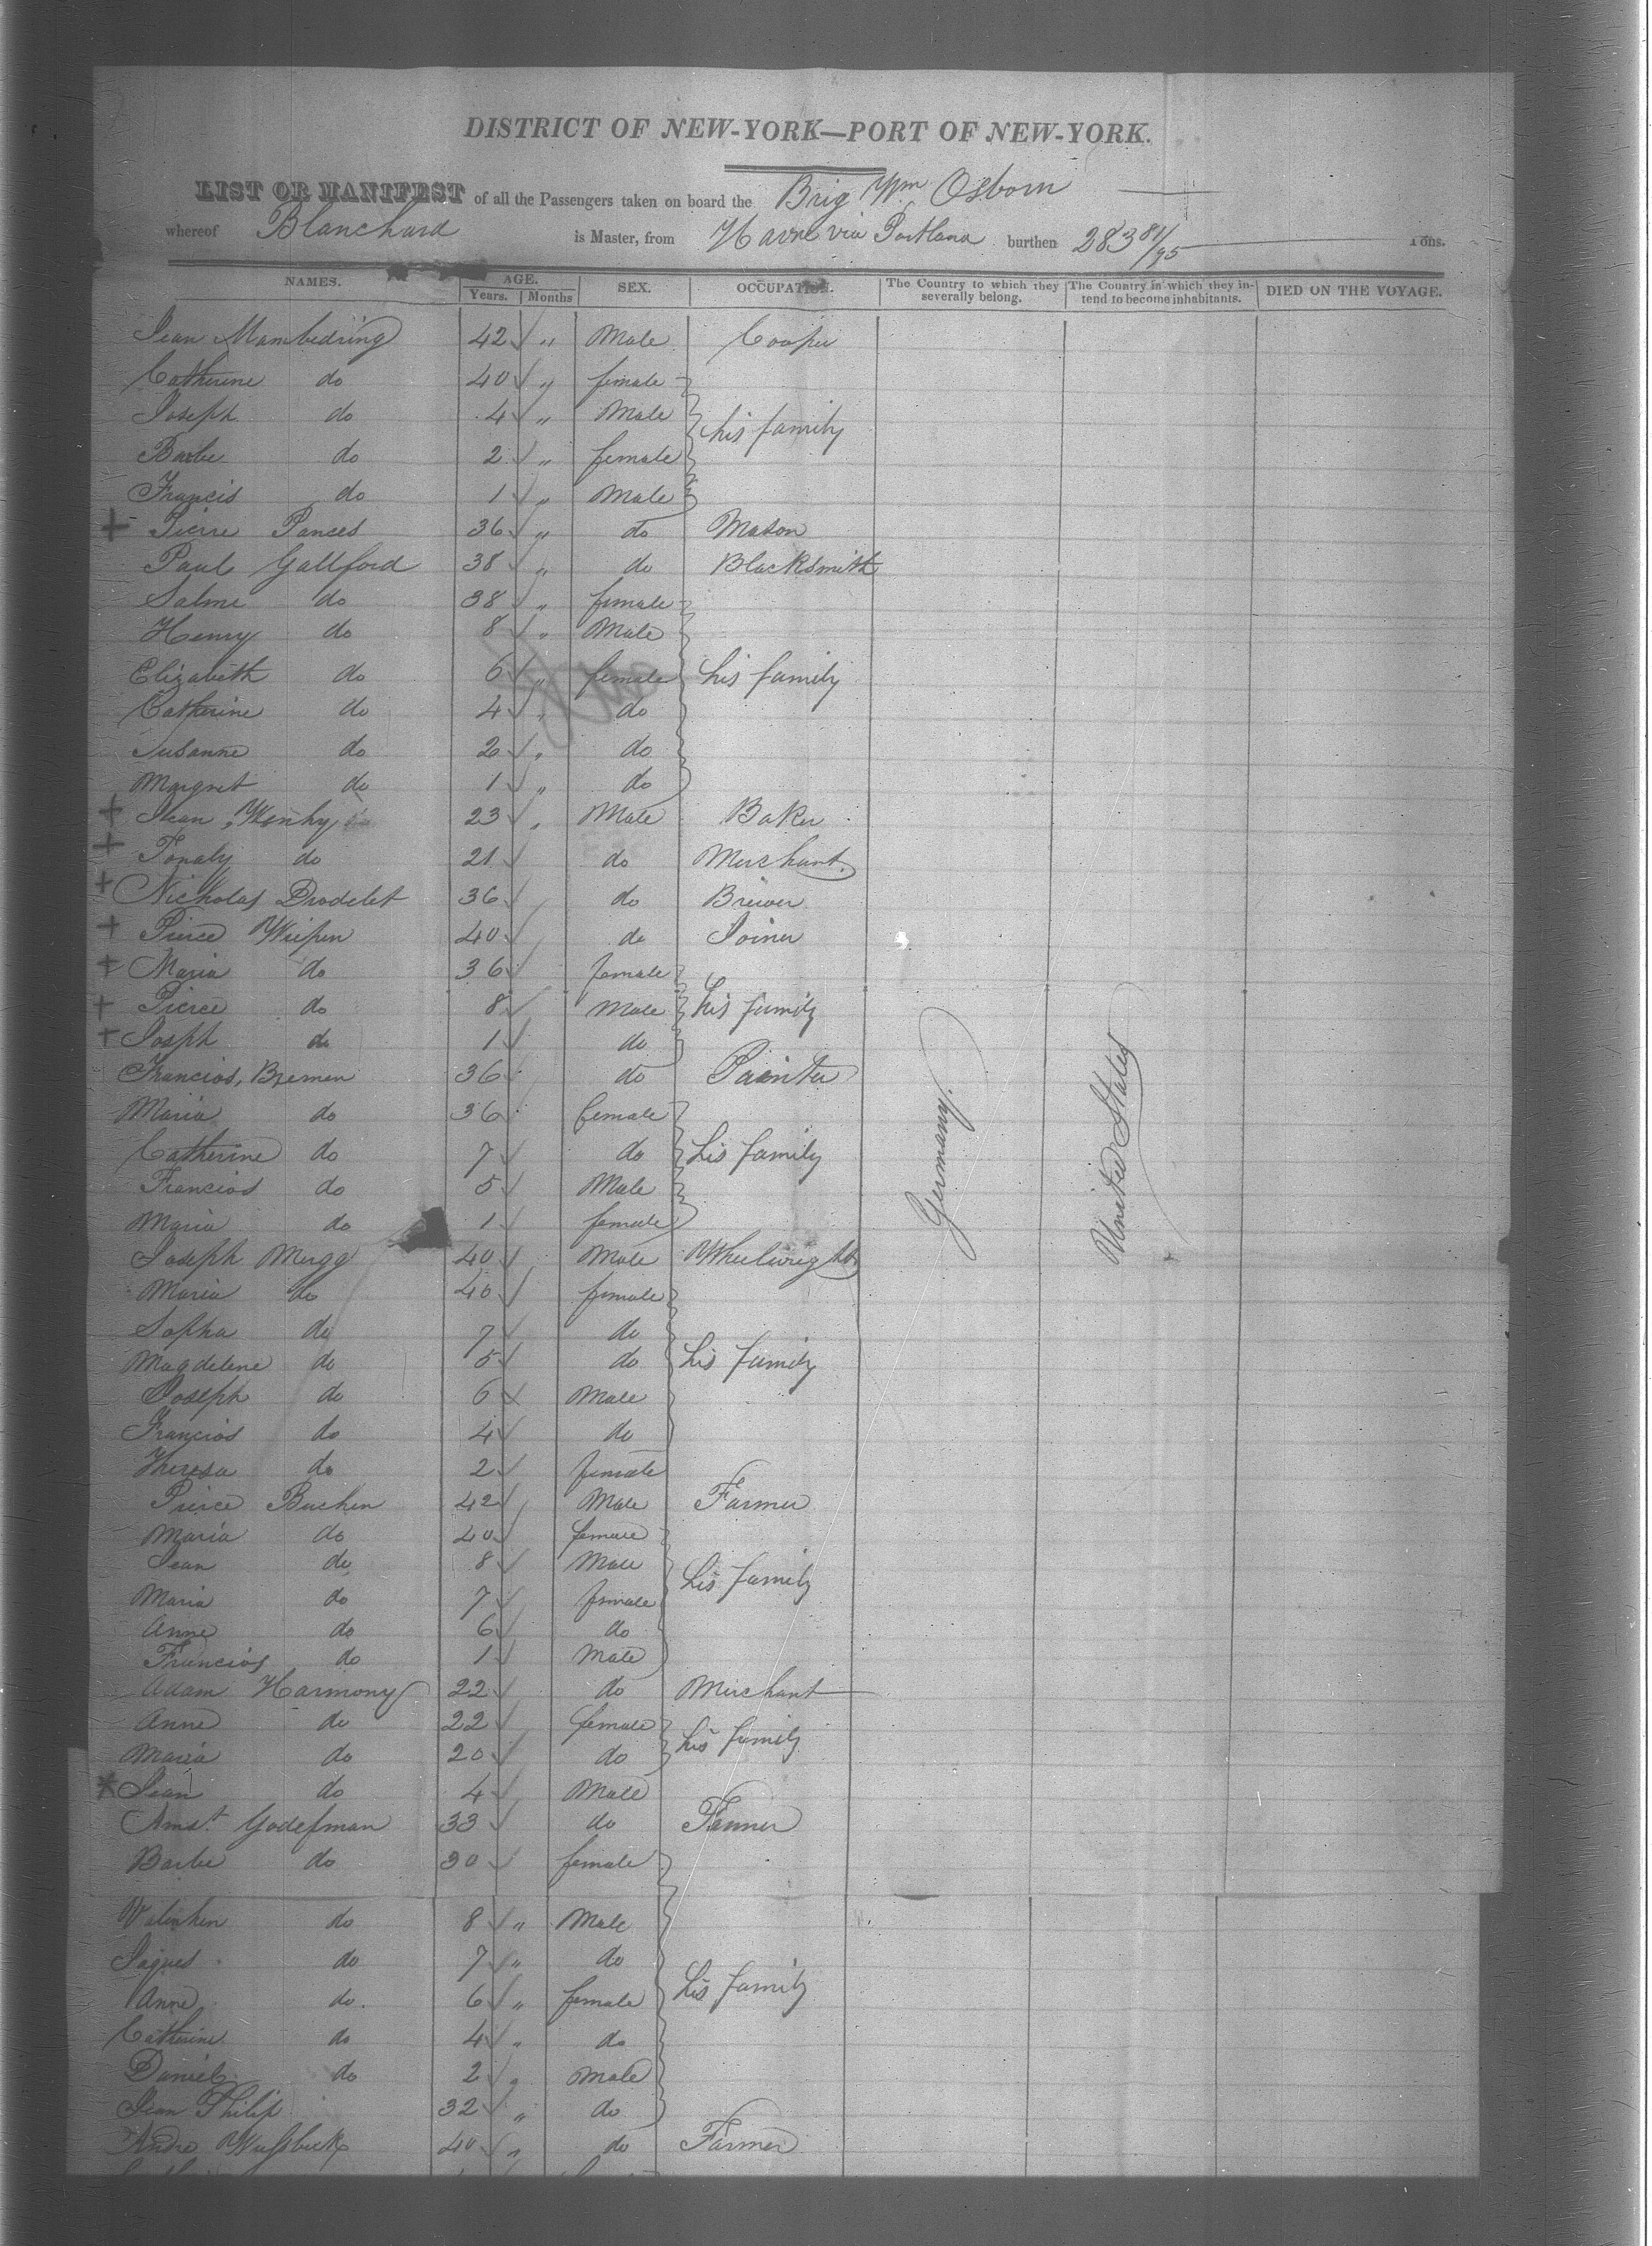 DISTRICT OF NEW-YORK—PORT OF NEW-YORK.
LIST OR MANIFEST of all the Passengers taken on board the Brig Wm Osborn
whereof Blanchard is Master, from Havre via Portland burthen 283 81/95 Tons.
NAMES. AGE. Years. Months SEX. OCCUPATION. The Country to which they severally belong. The Country in which they intend to become inhabitants. DIED ON THE VOYAGE.
Jean Mambedring 42 " Male Cooper
Catherine do 40 " female
Joseph do 4 " Male his family
Barbe do 2 " female
Francis do 1 " Male
+ Pierre Pances 36 " do Mason
Paul Gallford 38 " do Blacksmith
Salme do 38 " female
Henry do 8 " Male
Elizabeth do 6 " female his family
Catherine do 4 " do
Susanne do 2 " do
Margret do 1 " do
+ Jean 23 " Male Baker
+ do 21 do Merchant
+ Nicholas Drodelet 36 do Brewer
+ Pierce Wiepen 40 do Joiner
+ Maria do 36 female
+ Pierce do 8 Male his family
+ Josph do 1 do
Francios, Bremen 36 do Painter
Maria do 36 female
Catherine do 7 do his family
Francios do 5 Male
Maria do 1 female
Joseph Mugg 40 Male Wheelwright
Maria do 40 female
Sopha do 7 do
Magdelene do 5 do his family
Joseph do 6 Male
Francios do 4 do
Theresa do 2 female
Pierce Buchen 42 Male Farmer
Maria do 40 female
Jean do 8 Male his family
Maria do 7 female
Anne do 6 do
Francios do 1 Male
Adam Harmony 22 do Merchant
Anne do 22 female his family
Maria do 20 do
Jean do 4 Male
Godefman 33 do
Barbe do 30 female
do 8 " Male
Jaques do 7 " do
Anne do. 6 " female his family
Catherine do 4 " do
Daniel do 2 " Male
Jean Philip 32 " do
Andre 40 " do Farmer
Germany.
United States